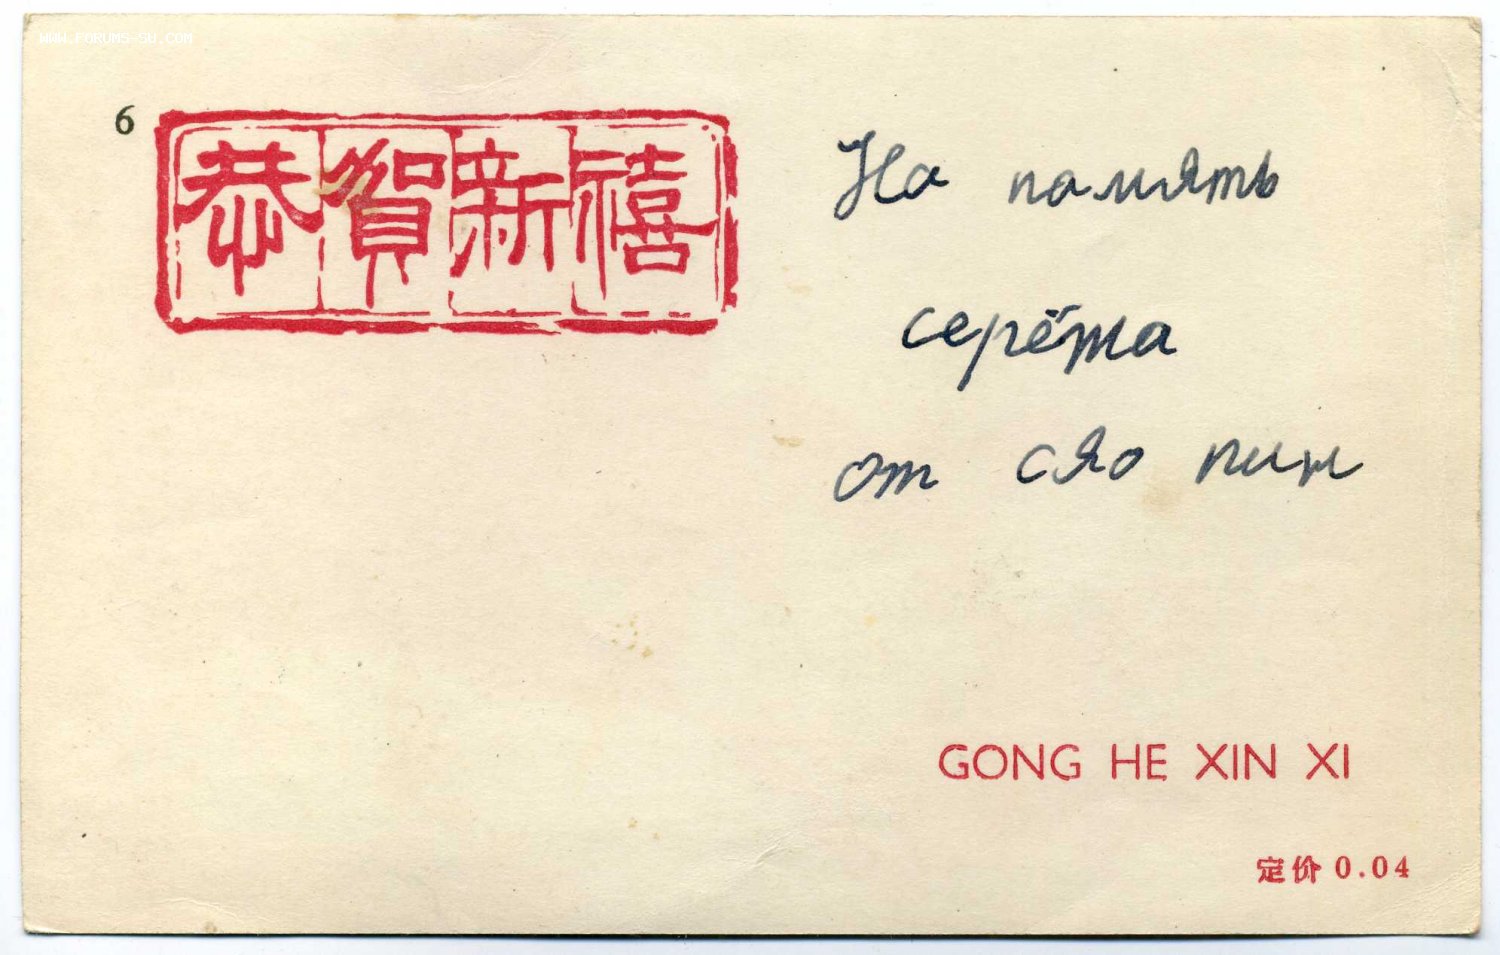 WWW.FORUMS-SU.COM
6
恭賀新禧
На память
серёжа
от сяо пин
GONG HE XIN XI
定价 0.04